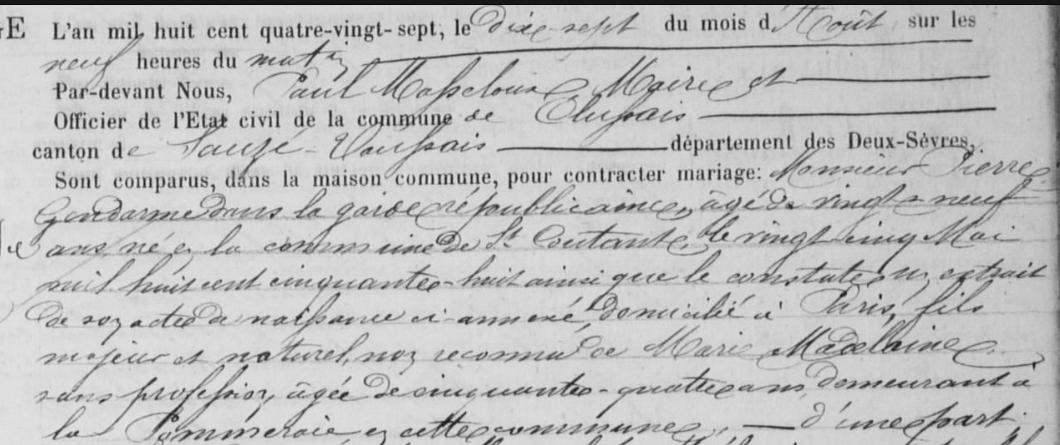 GE L'an mil huit cent quatre-vingt-sept, le dix sept du mois d'Août sur les
neuf heures du matin
Par-devant Nous, Paul Masseloux Maire et
Officier de l'Etat civil de la commune de Clussais
canton de Sauzé-Vaussais département des Deux-Sèvres,
Sont comparus, dans la maison commune, pour contracter mariage: Monsieur Pierre
Gendarme dans la garde républicaine, âgé de vingt-neuf
ans, né en la commune de St Coutant, le vingt cinq Mai
mil huit cent cinquante-huit ainsi que le constate un extrait
de son acte de naissance ci-annexé, domicilié à Paris, fils
majeur et naturel, non reconnu de Marie Madelaine
sans profession, âgée de cinquante-quatre ans, demeurant à
la Pommeraie en cette commune, d'une part